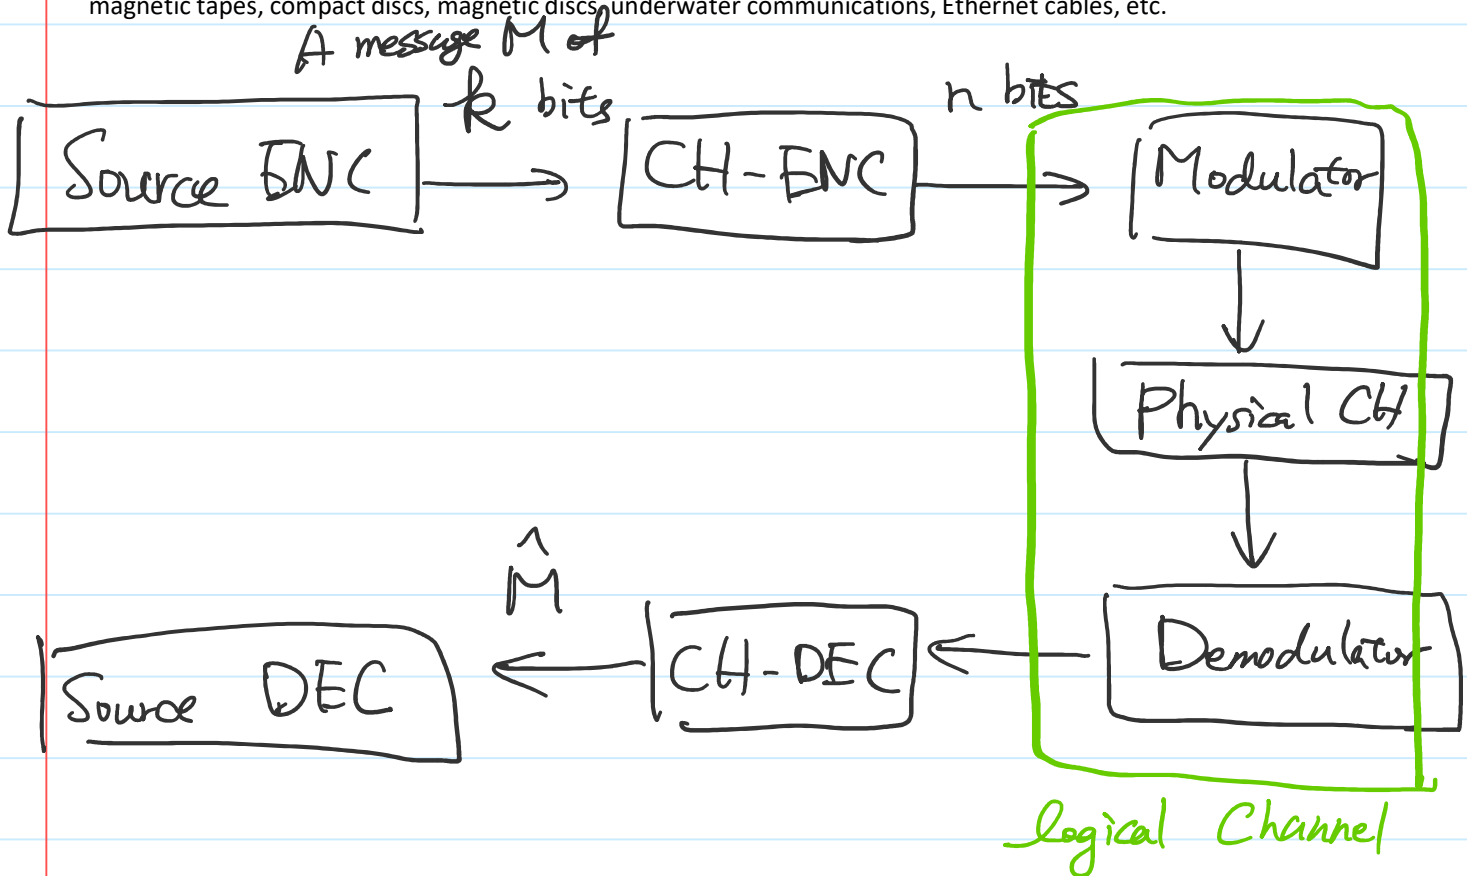 magnetic tapes, compact discs, magnetic discs, underwater communications, Ethernet cables, etc.
A message M of
k bits
n bits
Source ENC
CH-ENC
Modulator
Physical CH
M̂
Source DEC
CH-DEC
Demodulator
logical Channel